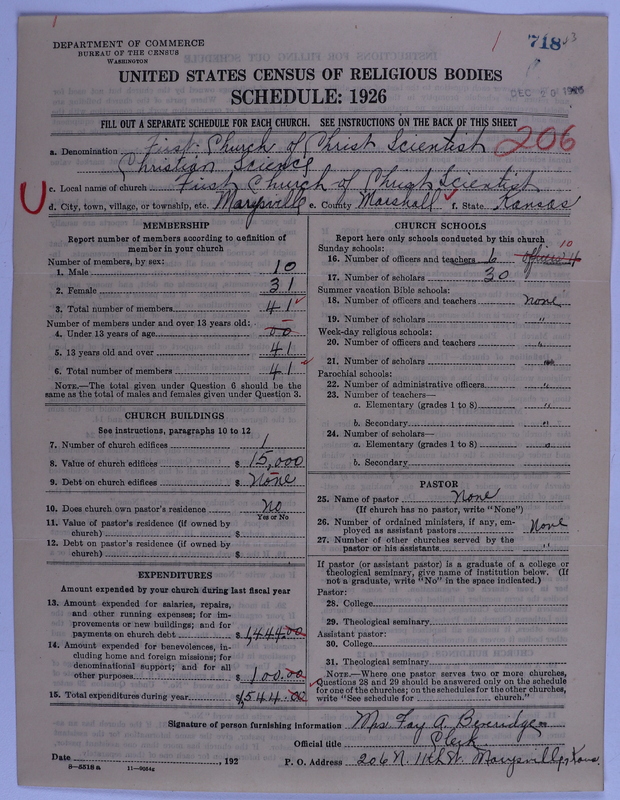 718
DEPARTMENT OF COMMERCE
BUREAU OF THE CENSUS
WASHINGTON
UNITED STATES CENSUS OF RELIGIOUS BODIES
DEC 20 1926
SCHEDULE: 1926
FILL OUT A SEPARATE SCHEDULE FOR EACH CHURCH. SEE INSTRUCTIONS ON THE BACK OF THIS SHEET
206
a. Denomination First Church of Christ Scientist
Christian Science
c. Local name of church First Church of Christ Scientist
U d. City, town, village, or township, etc. Marysville e. County Marshall f. State Kansas
MEMBERSHIP
Report number of members according to definition of
member in your church
Number of members, by sex:
1. Male 10
2. Female 31
3. Total number of members 41
Number of members under and over 13 years old:
4. Under 13 years of age 00
5. 13 years old and over 41
6. Total number of members 41
NOTE.—The total given under Question 6 should be
same as the total of males and females given under Question 3.
CHURCH BUILDINGS
See instructions, paragraphs 10 to 12
7. Number of church edifices 1
8. Value of church edifices $ 15,000
9. Debt on church edifices $ None
10. Does church own pastor's residence No
Yes or No
11. Value of pastor's residence (if owned by
church) $
12. Debt on pastor's residence (if owned by
church) $
EXPENDITURES
Amount expended by your church during last fiscal year
13. Amount expended for salaries, repairs,
and other running expenses; for im-
provements or new buildings; and for
payments on church debt $ 1,444.00
14. Amount expended for benevolences, in-
cluding home and foreign missions; for
denominational support; and for all
other purposes $ 100.00
15. Total expenditures during year $ 1,544.00
CHURCH SCHOOLS
Report here only schools conducted by this church
Sunday schools:
16. Number of officers and teachers 6 officers 4 10
17. Number of scholars 30
Summer vacation Bible schools:
18. Number of officers and teachers none
19. Number of scholars "
Week-day religious schools:
20. Number of officers and teachers "
21. Number of scholars
Parochial schools:
22. Number of administrative officers "
23. Number of teachers—
a. Elementary (grades 1 to 8) "
b. Secondary "
24. Number of scholars—
a. Elementary (grades 1 to 8) "
b. Secondary
PASTOR
25. Name of pastor None
(If church has no pastor, write "None")
26. Number of ordained ministers, if any, em-
ployed as assistant pastors None
27. Number of other churches served by the
pastor or his assistants "
If pastor (or assistant pastor) is a graduate of a college or
theological seminary, give name of Institution below. (If
not a graduate, write "No" in the space indicated.)
Pastor:
28. College
29. Theological seminary
Assistant pastor:
30. College
31. Theological seminary
NOTE.—Where one pastor serves two or more churches,
Questions 28 and 29 should be answered only on the schedule
for one of the churches; on the schedules for the other churches,
write "See schedule for church."
Signature of person furnishing information Mrs Fay A. Beveridge
Official title Clerk
Date , 192 P. O. Address 206 N. 11th St. Marysville, Kans.
8—5518 a 11—9044